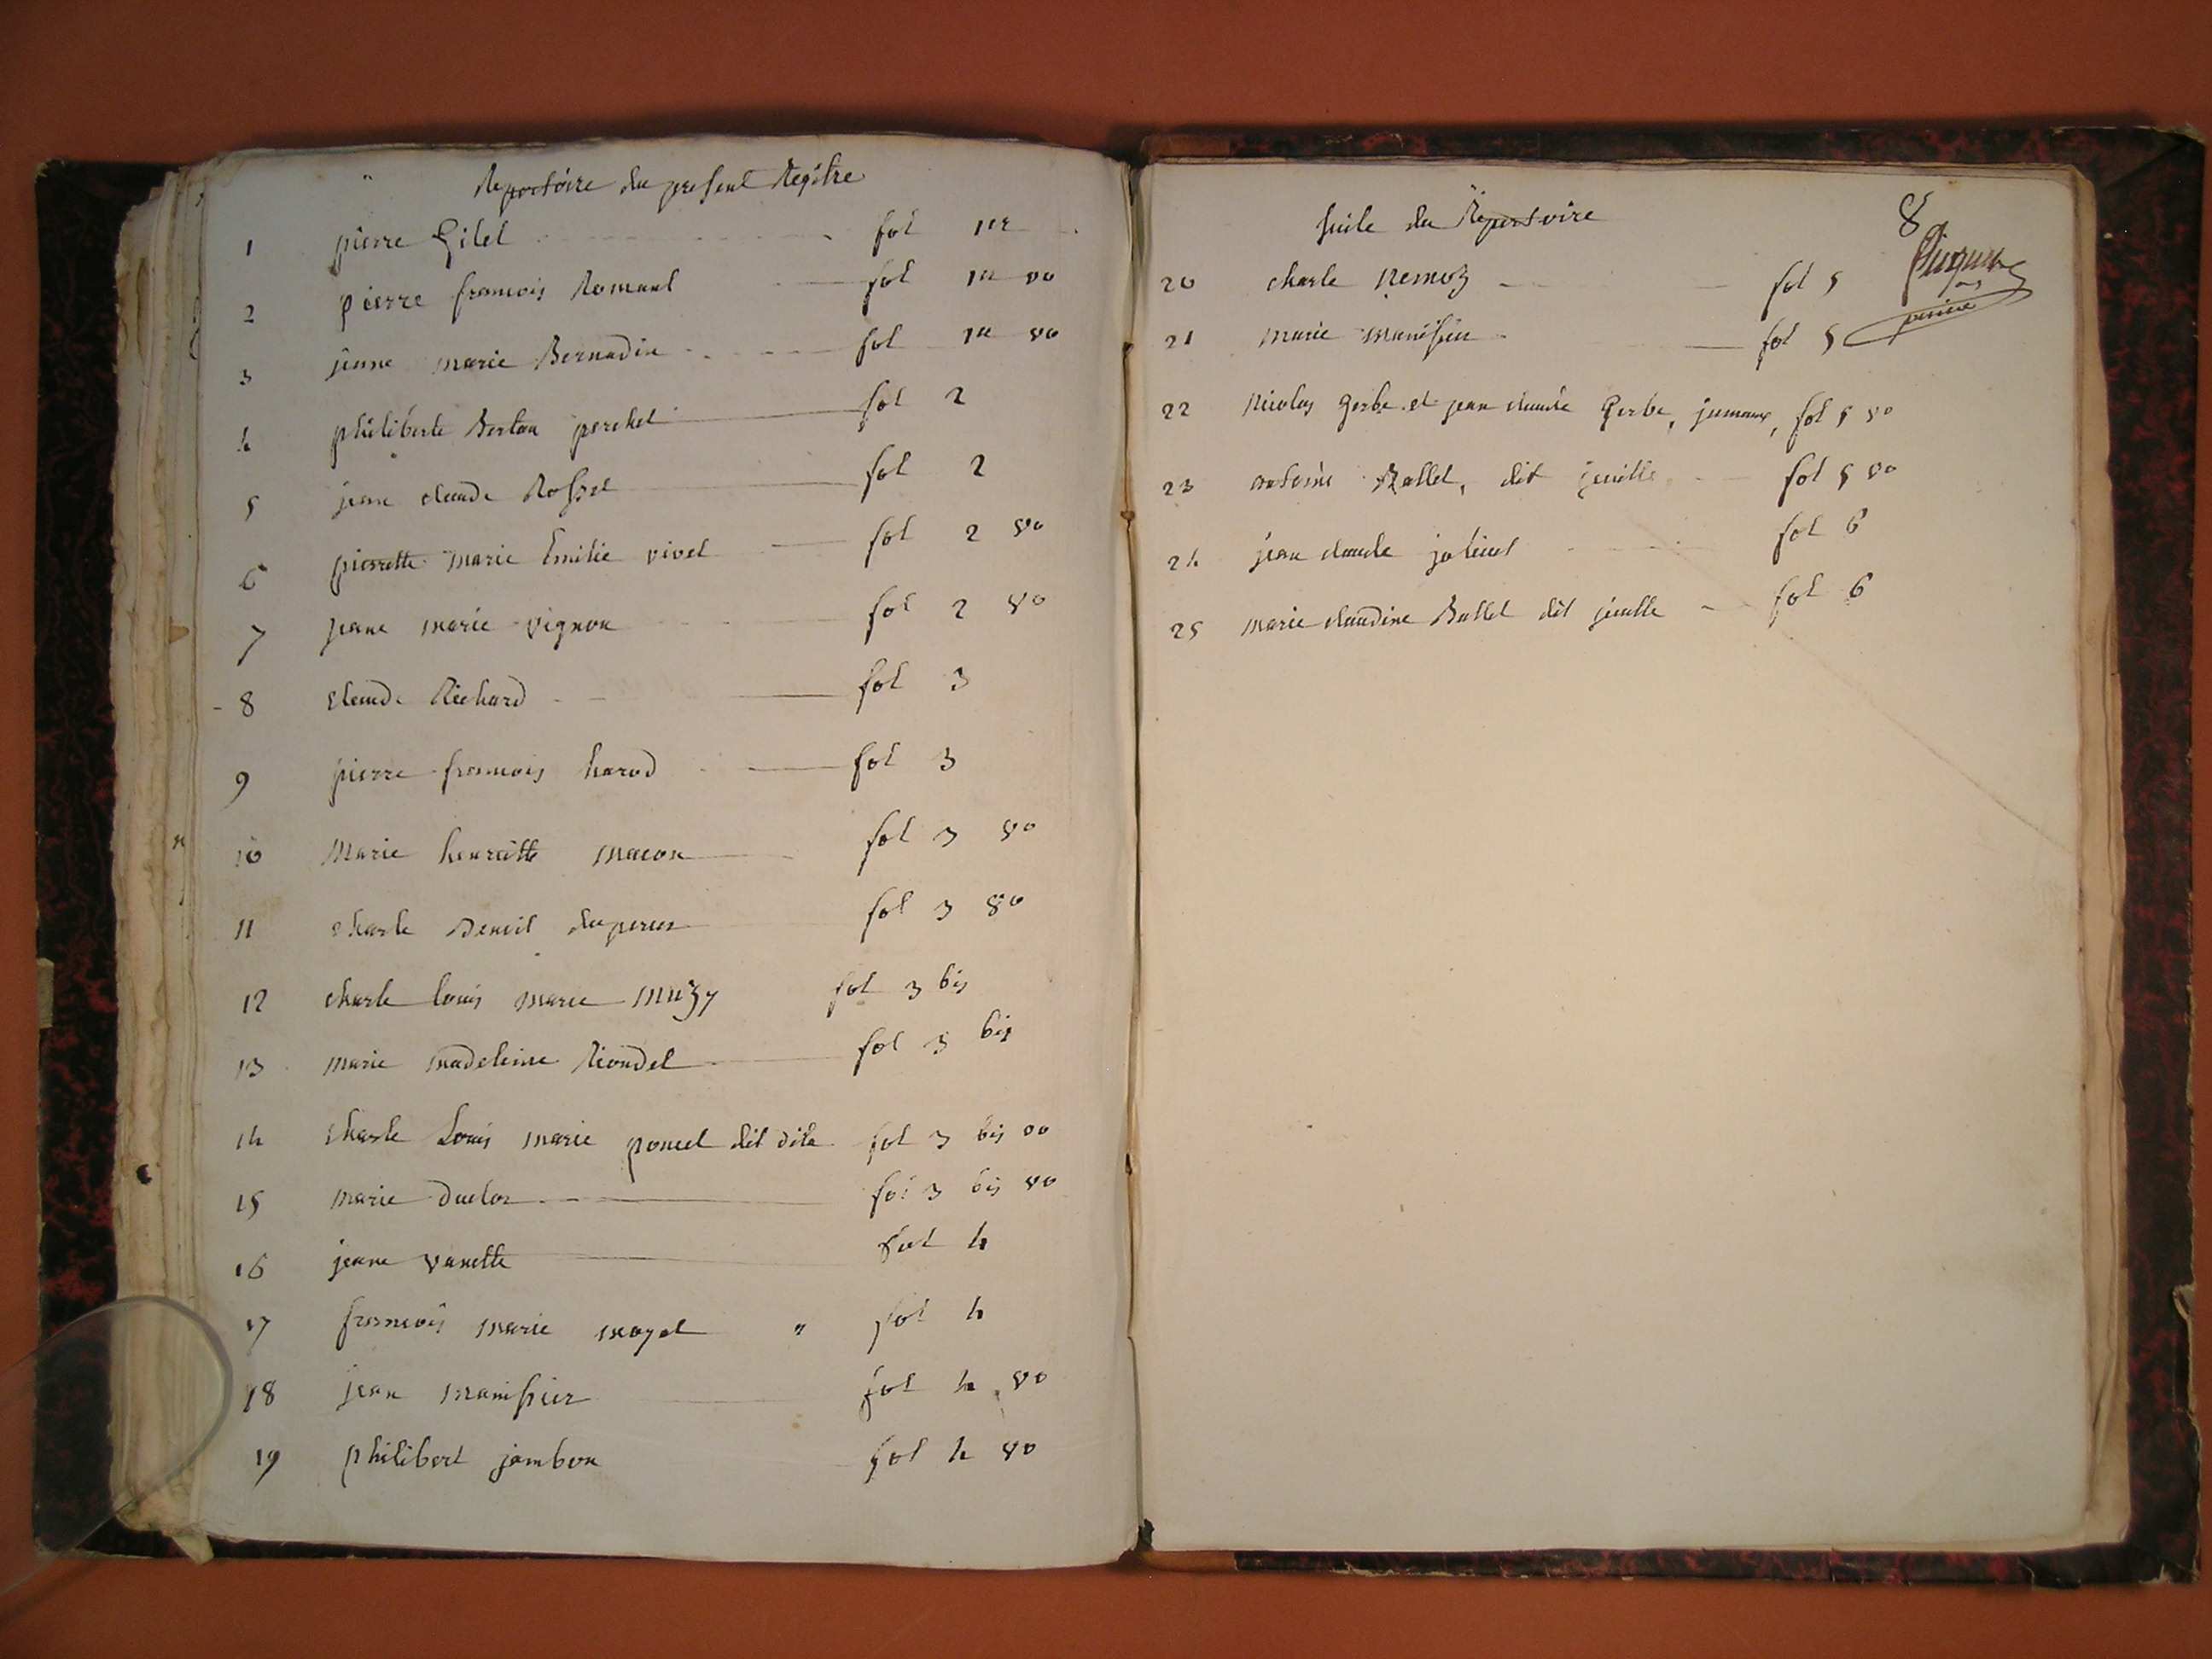 Repertoire du present Regitre
1 pierre Gilet fol 1er
2 pierre francois Romanet fol 1er vo
3 jeane marie Bernadin fol 1er vo
4 philiberte Berton perchet fol 2
5 jean claude Rosset fol 2
6 pierrette marie Emilie vivet fol 2 vo
7 jeane marie vignon fol 2 vo
8 claude Richard fol 3
9 pierre francois harod fol 3
10 Marie henriette macon fol 3 vo
11 charle Benoit duperier fol 3 vo
12 charle louis marie muzy fol 3 bis
13 marie madeleine Riondel fol 3 bis
14 charle Louis marie poncet dit fol 3 bis vo
15 marie duclos fol 3 bis vo
16 jeane vanette fol 4
17 francois marie moyet " fol 4
18 jean manissier fol 4 vo
19 philibert jambon fol 4 vo
suite du Repertoire
8
20 charle nemoz fol 5
21 marie manissier fol 5
22 nicolas gerbe et jean claude Gerbe, jumaux, fol 5 vo
23 antoine Ballet, dit fol 5 vo
24 jean claude fol 6
25 marie claudine Ballet dit fol 6